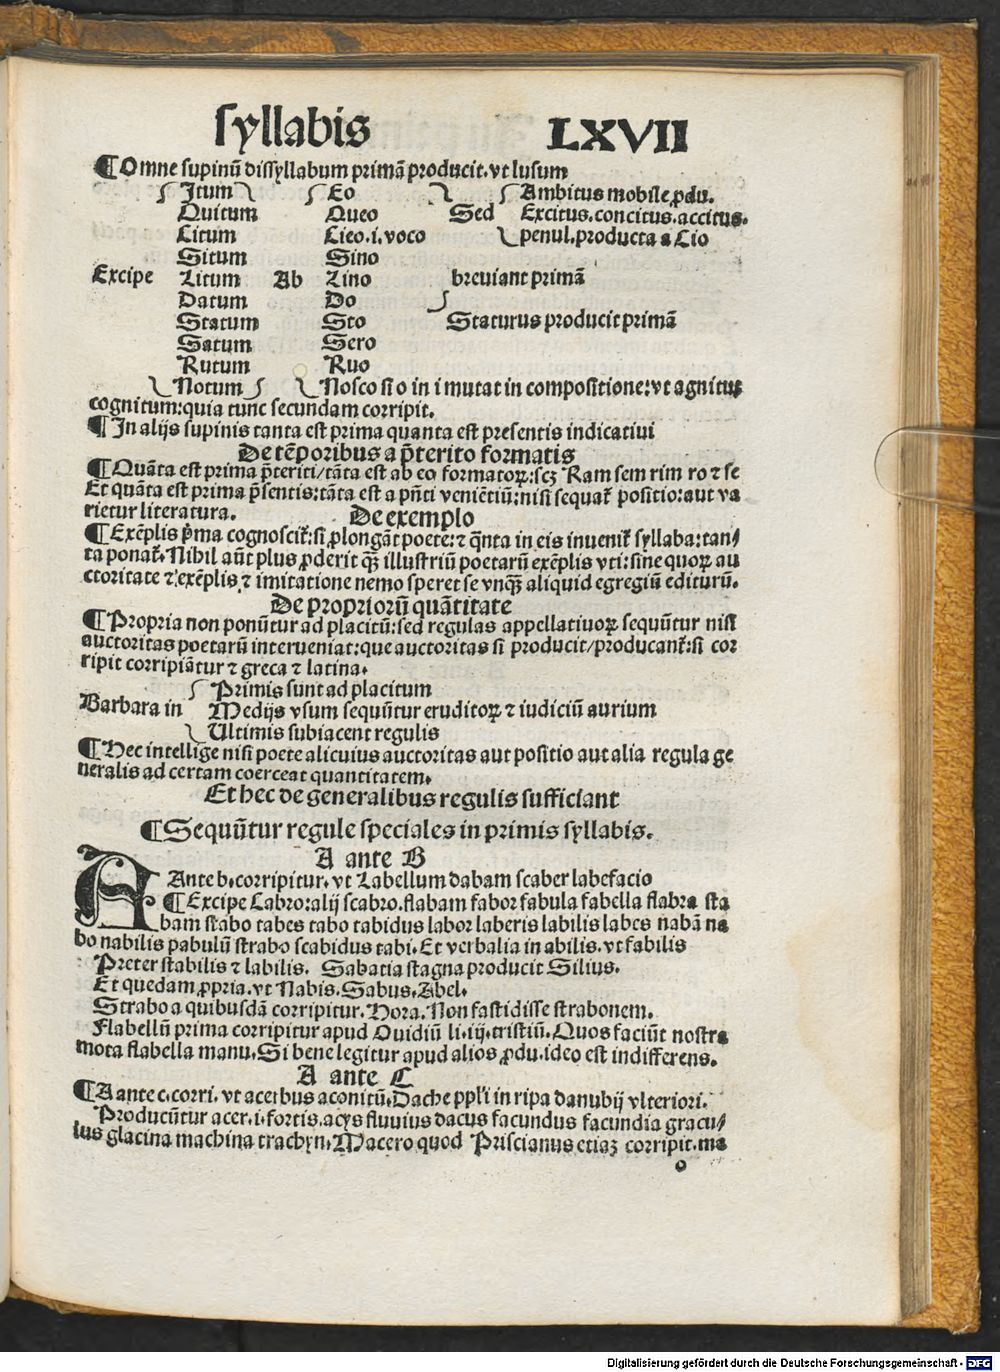 syllabis LXVII
¶Omne supinū dissyllabum primā producit. vt lusum
Itum Eo Ambitus mobile ꝓdu.
Quitum Queo Sed Excitus. concitus. accitus.
Citum Cieo. i. voco penul. producta a Cio
Situm Sino
Excipe Litum Ab Lino breviant primā
Datum Do
Statum Sto Staturus producit primā
Satum Sero
Rutum Ruo
Notum Nosco si o in i mutat in compositione: vt agnitum
cognitum: quia tunc secundam corripit.
¶In alijs supinis tanta est prima quanta est presentis indicatiui
De tēporibus a p̄terito formatis
¶Quāta est prima p̄teriti/tāta est ab eo formatoꝝ: scꝫ Ram sem rim ro ⁊ se
Et quāta est prima p̄sentis: tāta est a pn̄ti veniētiū: nisi sequat᷑ positio: aut va
rietur literatura. De exemplo
¶Exēplis p̄ma cognoscit᷑: si ꝓlongāt poete: ⁊ qn̄ta in eis inuenit᷑ syllaba: tan/
ta ponat᷑. Nihil aūt plus ꝓderit qꝫ̄ illustriū poetarū exēplis vti: sine quoꝝ au
ctoritate ⁊ exēplis ⁊ imitatione nemo speret se vnqꝫ̄ aliquid egregiū editurū.
De propriorū quātitate
¶Propria non ponūtur ad placitū: sed regulas appellatiuoꝝ sequūtur nisi
auctoritas poetarū interueniat: que auctoritas si producit/producant᷑: si cor
ripit corripiātur ⁊ greca ⁊ latina.
Primis sunt ad placitum
Barbara in Medijs vsum sequūtur eruditoꝝ ⁊ iudiciū aurium
Ultimis subiacent regulis
¶Hec intellige nisi poete alicuius auctoritas aut positio aut alia regula ge
neralis ad certam coerceat quantitatem.
Et hec de generalibus regulis sufficiant
¶Sequūtur regule speciales in primis syllabis.
A ante B
A Ante b. corripitur. vt Labellum dabam scaber labefacio
¶Excipe Labro: alij scabro. flabam fabor fabula fabella flabra sta
bam stabo tabes tabo tabidus labor laberis labilis labes nabā na
bo nabilis pabulū strabo scabidus tabi. Et verbalia in abilis. vt fabilis
Preter stabilis ⁊ labilis. Sabatia stagna producit Silius.
Et quedam ꝓpria. vt Nabis. Sabus. Abel.
Strabo a quibusdā corripitur. Hora. Non fastidisse strabonem.
Flabellū prima corripitur apud Ouidiū li. iij. tristiū. Quos faciūt nostra
mota flabella manu. Si bene legitur apud alios ꝓdu. ideo est indifferens.
A ante C
¶A ante c. corri. vt acerbus aconitū. Dache ppl'i in ripa danubij vlteriori.
Producūtur acer. i. fortis. acys fluuius dacus facundus facundia gracu/
lus glacina machina trachyn. Macero quod Priscianus etiaꝫ corripit. ma
o
Digitalisierung gefördert durch die Deutsche Forschungsgemeinschaft - DFG